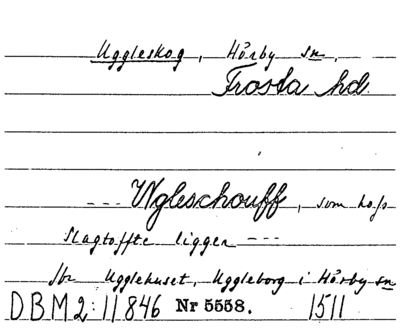 Uggleskog, Hörby sn,
Frosta hd.
--- Wgleschouff, som hoss
Slagtoffte ligger ---
Jbr Ugglehuset, Uggleborg i Hörby sn
DBM 2:11 846 Nr 5558. 1511